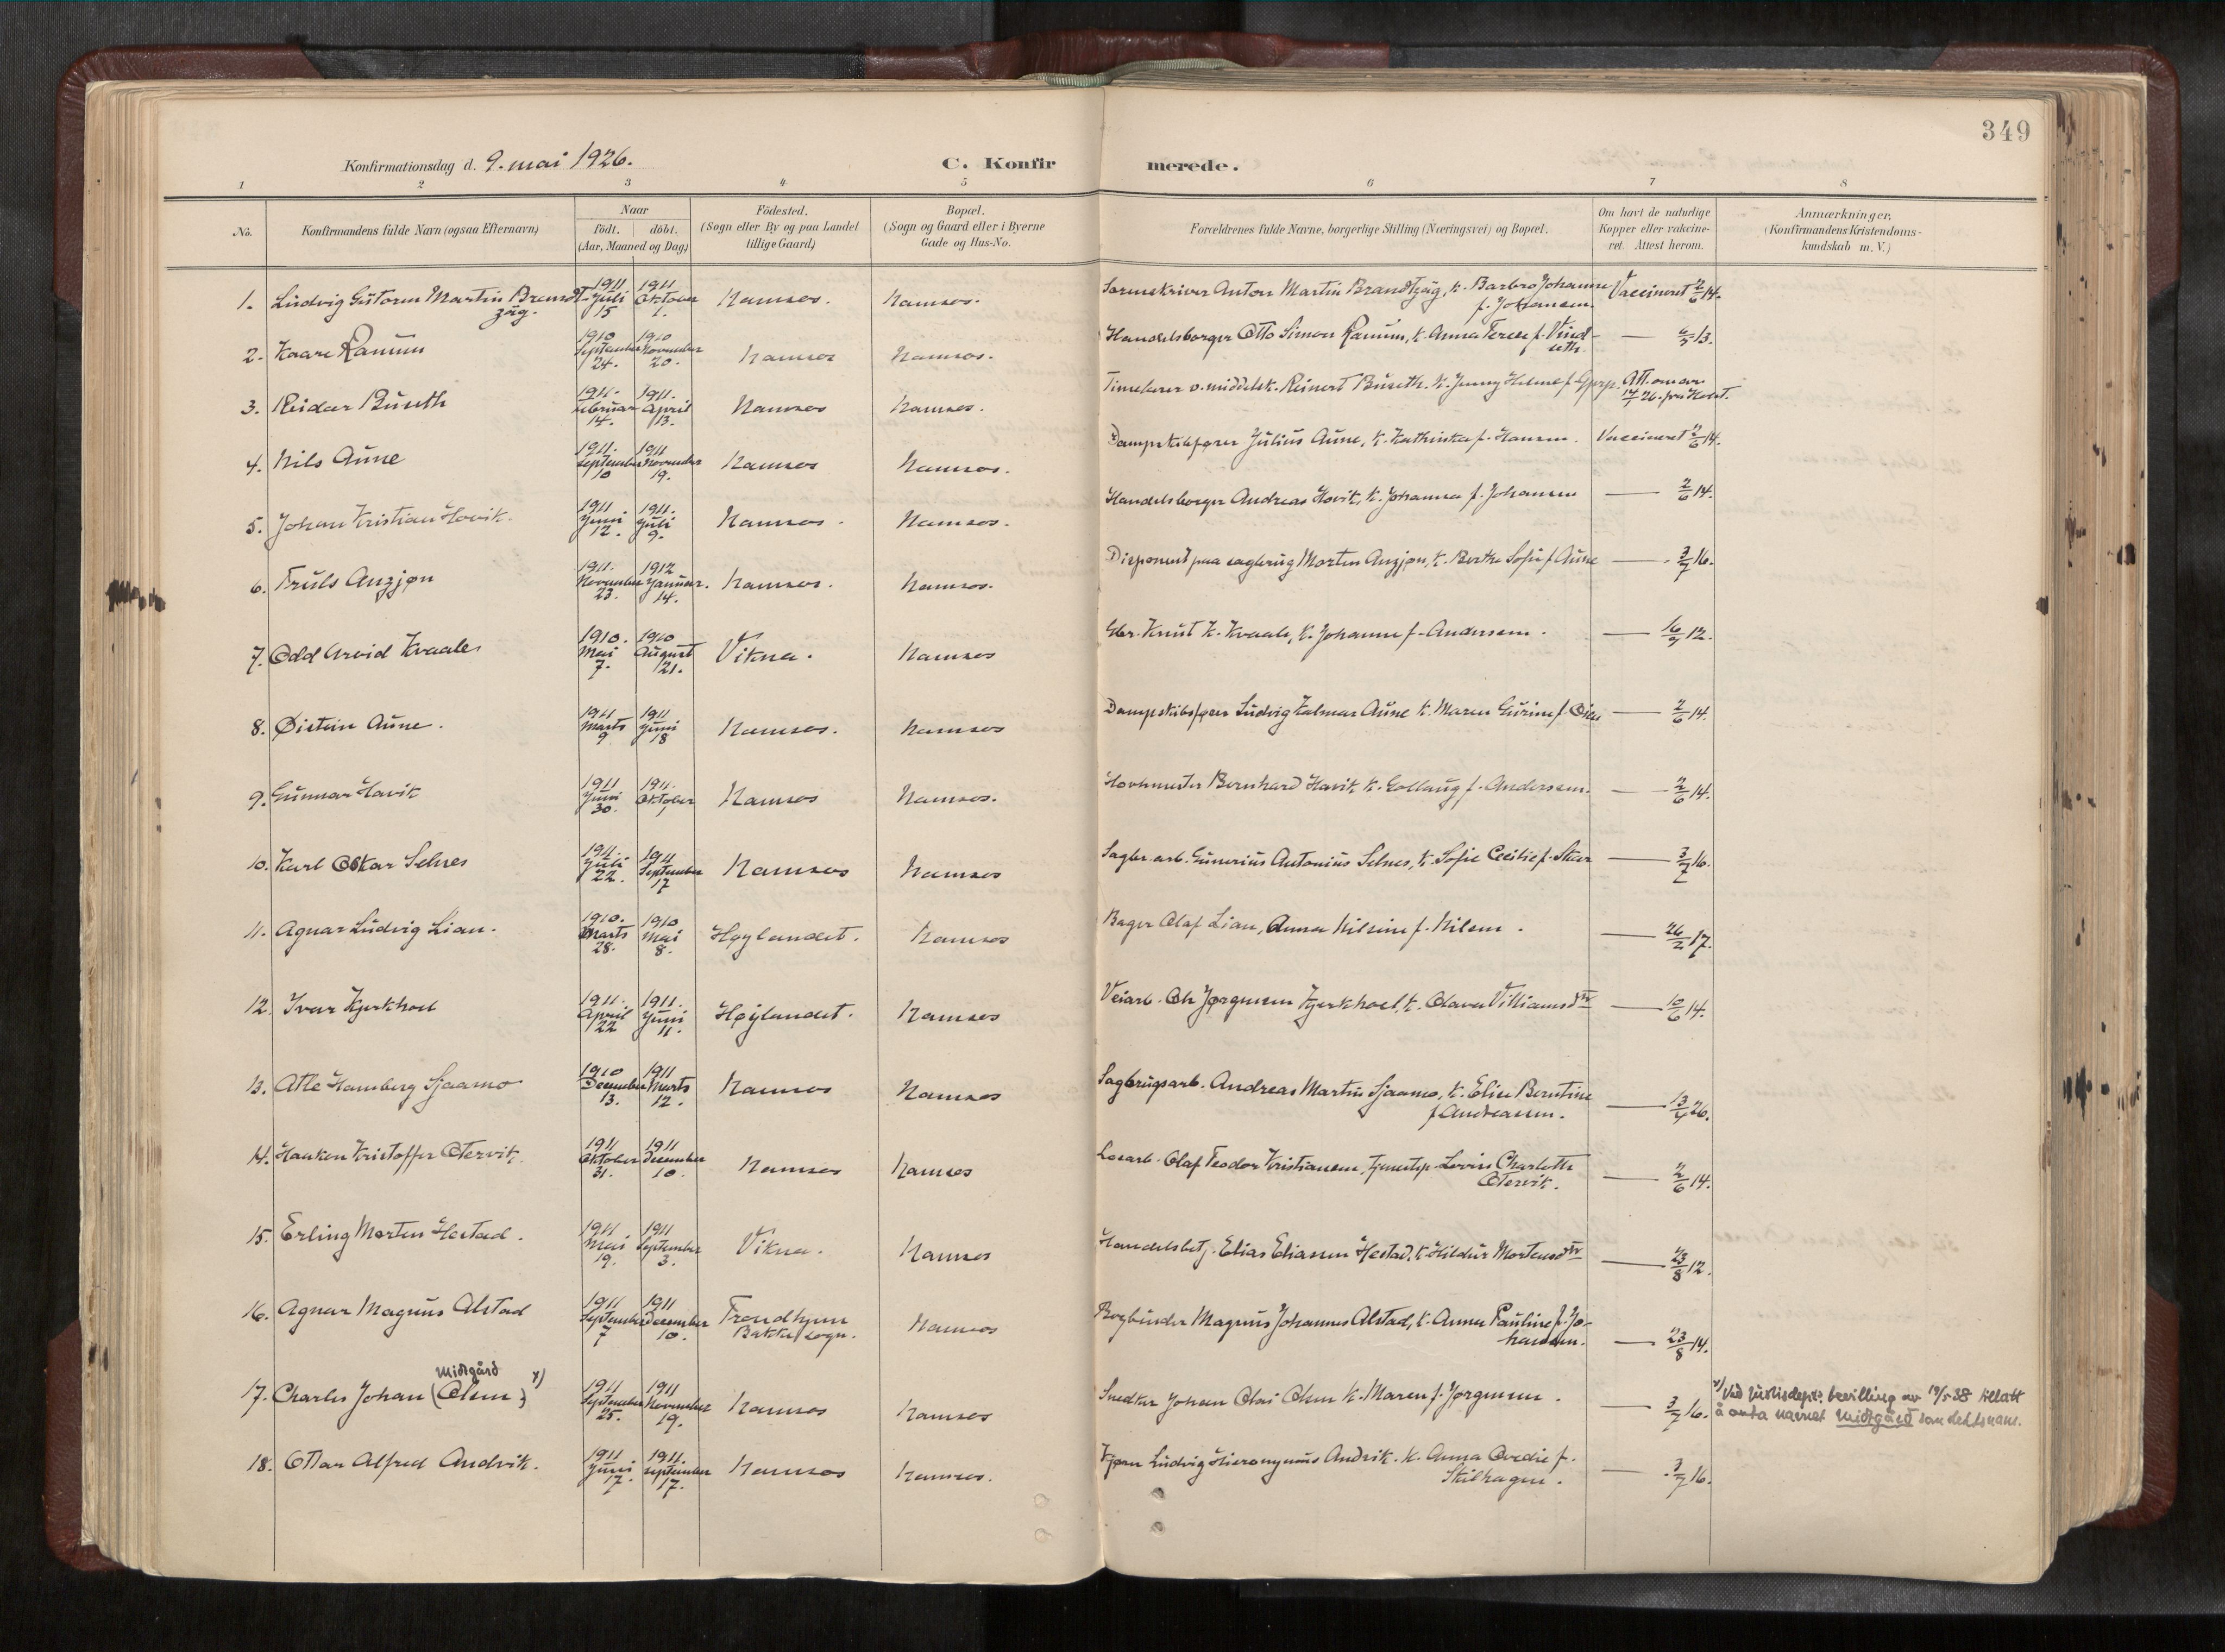 349
Konfirmationsdag d. 9. mai 1926.
C. Konfirmerede.
1 2 3 4 5 6 7 8
No.
Konfirmandens fulde Navn (ogsaa Efternavn)
Naar
födt. döbt.
(Aar, Maaned og Dag)
Födested.
(Sogn eller By og paa Landet
tillige Gaard)
Bopæl.
(Sogn og Gaard eller i Byerne
Gade og Hus-No.
Forældrenes fulde Navne, borgerlige Stilling (Næringsvei) og Bopæl.
Om havt de naturlige
Kopper eller vakcine-
ret. Attest herom.
Anmærkninger.
(Konfirmandens Kristendoms-
kundskab m. V.)
1. Ludvig Guttorm Martin Brandt-zæg. 1911 Juli 15 1911 Oktober 1. Namsos. Namsos. Sorenskriver Anton Martin Brandtzæg, k. Barbro Johanne f. Johansen. Vaccineret 2/6 14.
2. Kaare Ranum 1910 September 24. 1910 November 20. Namsos Namsos. Handelsborger Otto Simon Ranum, k. Anna Terese f. Vindseth. — 13.
3. Reidar Buseth 1911. Februar 14. 1911. April 13. Namsos Namsos. Timelærer v. middelsk. Reinert Buseth. k. Jenny Helene f. Att. om av 26. fra
4. Nils Aune 1911. September 10 1911 November 19. Namsos Namsos. Dampskibsfører Julius Aune, k. Kathinka f. Hansen. Vaccineret 2/6 14.
5. Johan Kristian Hovik. 1911 Juni 12. 1911. Juli 9. Namsos. Namsos. Handelsborger Andreas Hovik, k. Johanna f. Johansen — 2/6 14.
6. Truls Anzjøn 1911. November 23. 1912 Januar. 14. Namsos. Namsos. Disponent paa sagbrug Morten Anzjøn, k. Berthe Sofie f. Aune — 3/7 16.
7. Odd Arvid Kvaale 1910. Mai 7. 1910 August 21. Vikna. Namsos Gbr. Knut K. Kvaale, k. Johanne f. Andersen. — 16/7 12.
8. Øistein Aune. 1911 Marts 9 1911 Juni 18 Namsos. Namsos Dampskibsfører Ludvig Halmar Aune k. Maren Gurine f. Oien — 2/6 14.
9. Gunnar Havik 1911 Juni 30. 1911. Oktober 1 Namsos Namsos. Hovmester Bernhard Havik k. Gollaug f. Andersen. — 2/6 14.
10. Karl Oskar Selnes 1911. Juli 22. 1911 September 17 Namsos Namsos Sagbr. arb. Gunerius Antonius Selnes, k. Sofie Cecilie f. — 3/7 16.
11. Agnar Ludvig Lian. 1910. Marts 28. 1910 Mai 8. Høylandet. Namsos Bager Olaf Lian, Anna Nilsine f. Nilsen. — 26/2 17.
12. Ivar Kjerkhoel 1911. April 22 1911. Juni 11. Høylandet. Namsos Veiarb. Ole Jørgensen Kjerkhoel, k. Olava Villiamsdtr — 10/6 14.
13. Atle Hamberg Sjaamo 1910 December 13. 1911 Marts 12. Namsos Namsos Sagbrugsarb. Andreas Martin Sjaamo, k. Elise Berntine f. Andreassen. — 13/4 26.
14. Haaken Kristoffer Otervik 1911 Oktober 31. 1911 December 10. Namsos Namsos Løsarb. Olaf Teodor Kristiansen, tjenestep. Lovise Charlotte Otervik. — 2/6 14.
15. Erling Morten Hestad. 1911 Mai 19. 1911 September 3. Vikna. Namsos Handelsbetj. Elias Eliassen Hestad, k. Hildur Mortensdtr — 23/8 12.
16. Agnar Magnus Alstad 1911 September 7 1911 December 10. Trondhjem Bakke sogn. Namsos Bogbinder Magnus Johannes Alstad, k. Anna Pauline f. Johansen. — 23/8 14.
17. Charles Johan (Olsen) Midtgård x) 1911 September 25. 1911 November 19. Namsos Namsos Snedker Johan Olai Olsen k. Maren f. Jørgensen. — 3/7 16. x) Ved Justisdepts bevilling av 19/5 38 tillatt
å anta navnet Midtgård som slektsnavn.
18. Ottar Alfred Andvik. 1911 Juni 17. 1911. September 17. Namsos Namsos. Kjører Ludvig Hieronymus Andvik. k. Anna Ovedie f. Skilhagen. — 3/7 16.